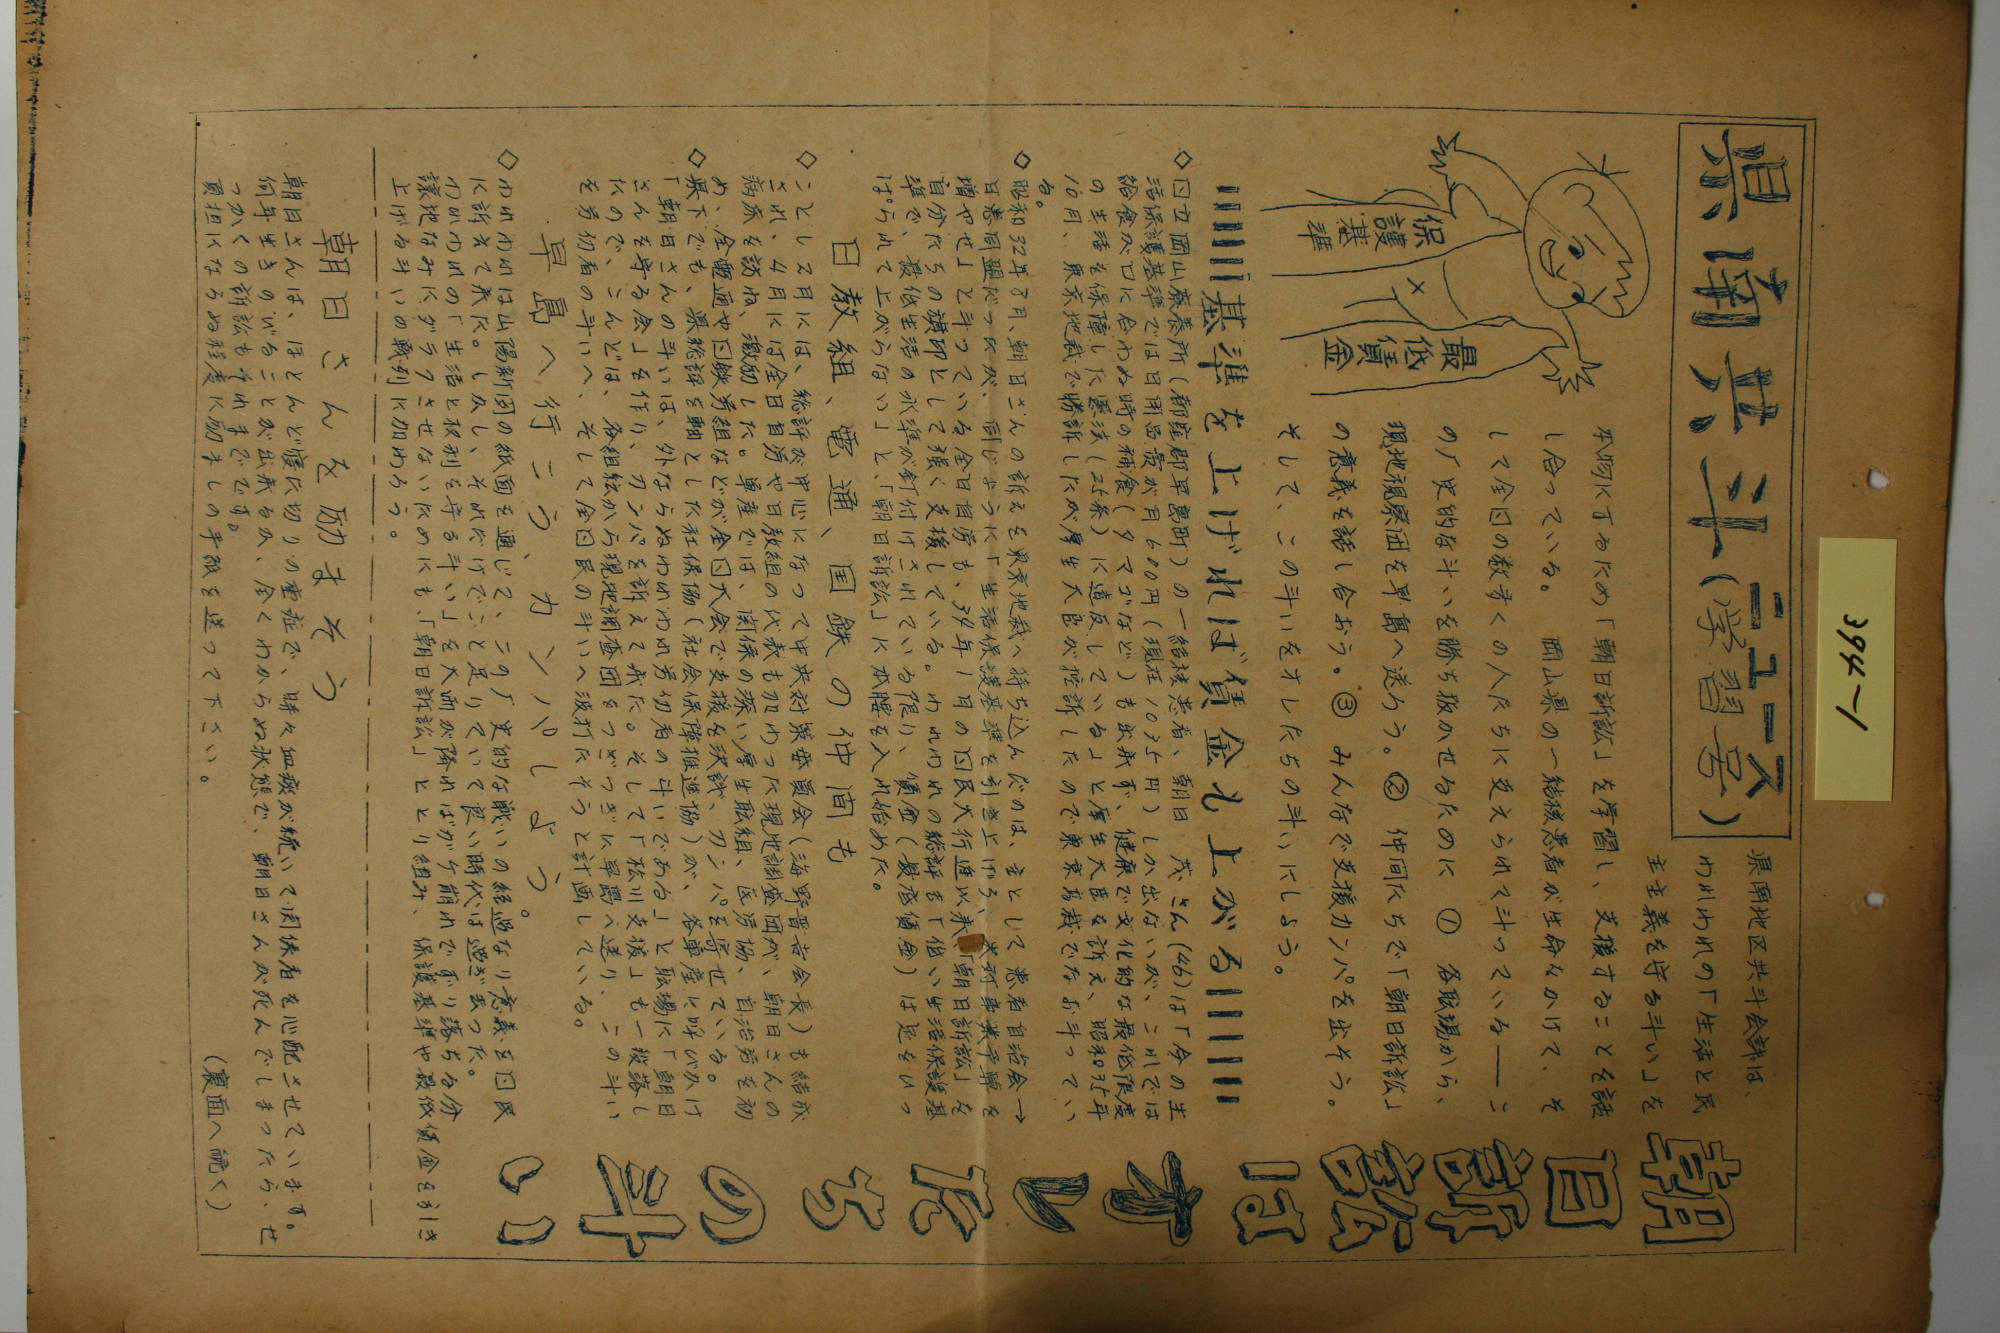 394-1
県南共斗ニュース
(学習号)
朝日訴訟はオレたちの斗い
県南地区共斗会議は、
われわれの「生活と民
主主義を守る斗い」を
本物にするため「朝日訴訟」を学習し、支援することを話
し合っている。 岡山県の一結核患者が生命をかけて、そ
して全国の数多くの人たちに支えられて斗っている――こ
の「史的な斗いを勝ち抜かせるために ① 各職場から、
現地視察団を早島へ送ろう。② 仲間たちで「朝日訴訟」
の意義を話し合おう。③ みんなで支援カンパを出そう。
そして、この斗いをオレたちの斗いにしよう。
保護基準
最低賃金
基準を上げれば賃金も上がる
◇国立岡山療養所(都窪郡早島町)の一結核患者、朝日 茂さん(46)は「今の生
活保護基準では日用品費が月600円(現在1035円)しか出ないが、これでは
給食が口に合わぬ時の補食(タマゴなど)も出来ず、健康で文化的な最低限度
の生活を保障した憲法(25条)に違反している」と厚生大臣を訴え、昭和35年
10月、東京地裁で勝訴したが厚生大臣が控訴したので東京高裁でなお斗ってい
る。
◇昭和32年8月、朝日さんの訴えを東京地裁へ持ち込んだのは、主として患者自治会→
日患同盟だったが、同じように「生活保護基準を引き上げろ、失対事業予算を
増やせ」と斗っている全日自労も、34年1月の国民大行進以来、「朝日訴訟」を
自分たちの旗印として強く支援している。われわれの総評も「低い生活保護基
準で、最低生活の水準が釘付けされている限り、賃金(最低賃金)は足をいっ
ぱられて上がらない」と、「朝日訴訟」に本腰を入れ始めた。
日教組、電通、国鉄の仲間も
◇ことし2月には、総評が中心になって中央対策委員会(海野晋吉会長)も結成
され、4月には全日自労や日教組の代表も加わった現地調査団が、朝日さんの
病床を訪ね、激励した。単産では、関係の深い厚生職組、医労協、自治労を初
め、全電通や国鉄労組などが全国大会で支援を決議、カンパを寄せている。
◇県下でも、県総評を軸とした社保協(社会保障推進協)が、各単産に呼びかけ
「朝日さんの斗いは、外ならぬわれわれ労仂者の斗いである」と職場に「朝日
さんを守る会」を作り、カンパを訴えて来た。そして「松川支援」も一段落し
たので、こんどは、各組織から現地調査団をつぎつぎに早島へ送り、この斗い
を労仂者の斗いへ、そして全国民の斗いへ波打たそうと計画している。
早島へ行こう、カンパしよう。
◇われわれは山陽新聞の紙面を通じて、この「史的な戦いの経過なり意義を国民
に訴えて来た。しかし、それだけでこと足りていて良い時代は過ぎ去った。
われわれの「生活と权利を守る斗い」を大雨が降ればガケ崩れでずり落ちる分
譲地なみにグラつさせないためにも、「朝日訴訟」ととり組み、保護基準や最低賃金を引き
上げる斗いの戦列に加わろう。
朝日さんを励まそう
朝日さんは、ほとんど寝た切りの重症で、時々血痰が続いて関係者を心配させています。
何年生きのびることが出来るか、全くわからぬ状態で、朝日さんが死んでしまったら、せ
っかくの訴訟もそれまでです。
負担にならぬ程度に励ましの手紙を送って下さい。
(裏面へ続く)